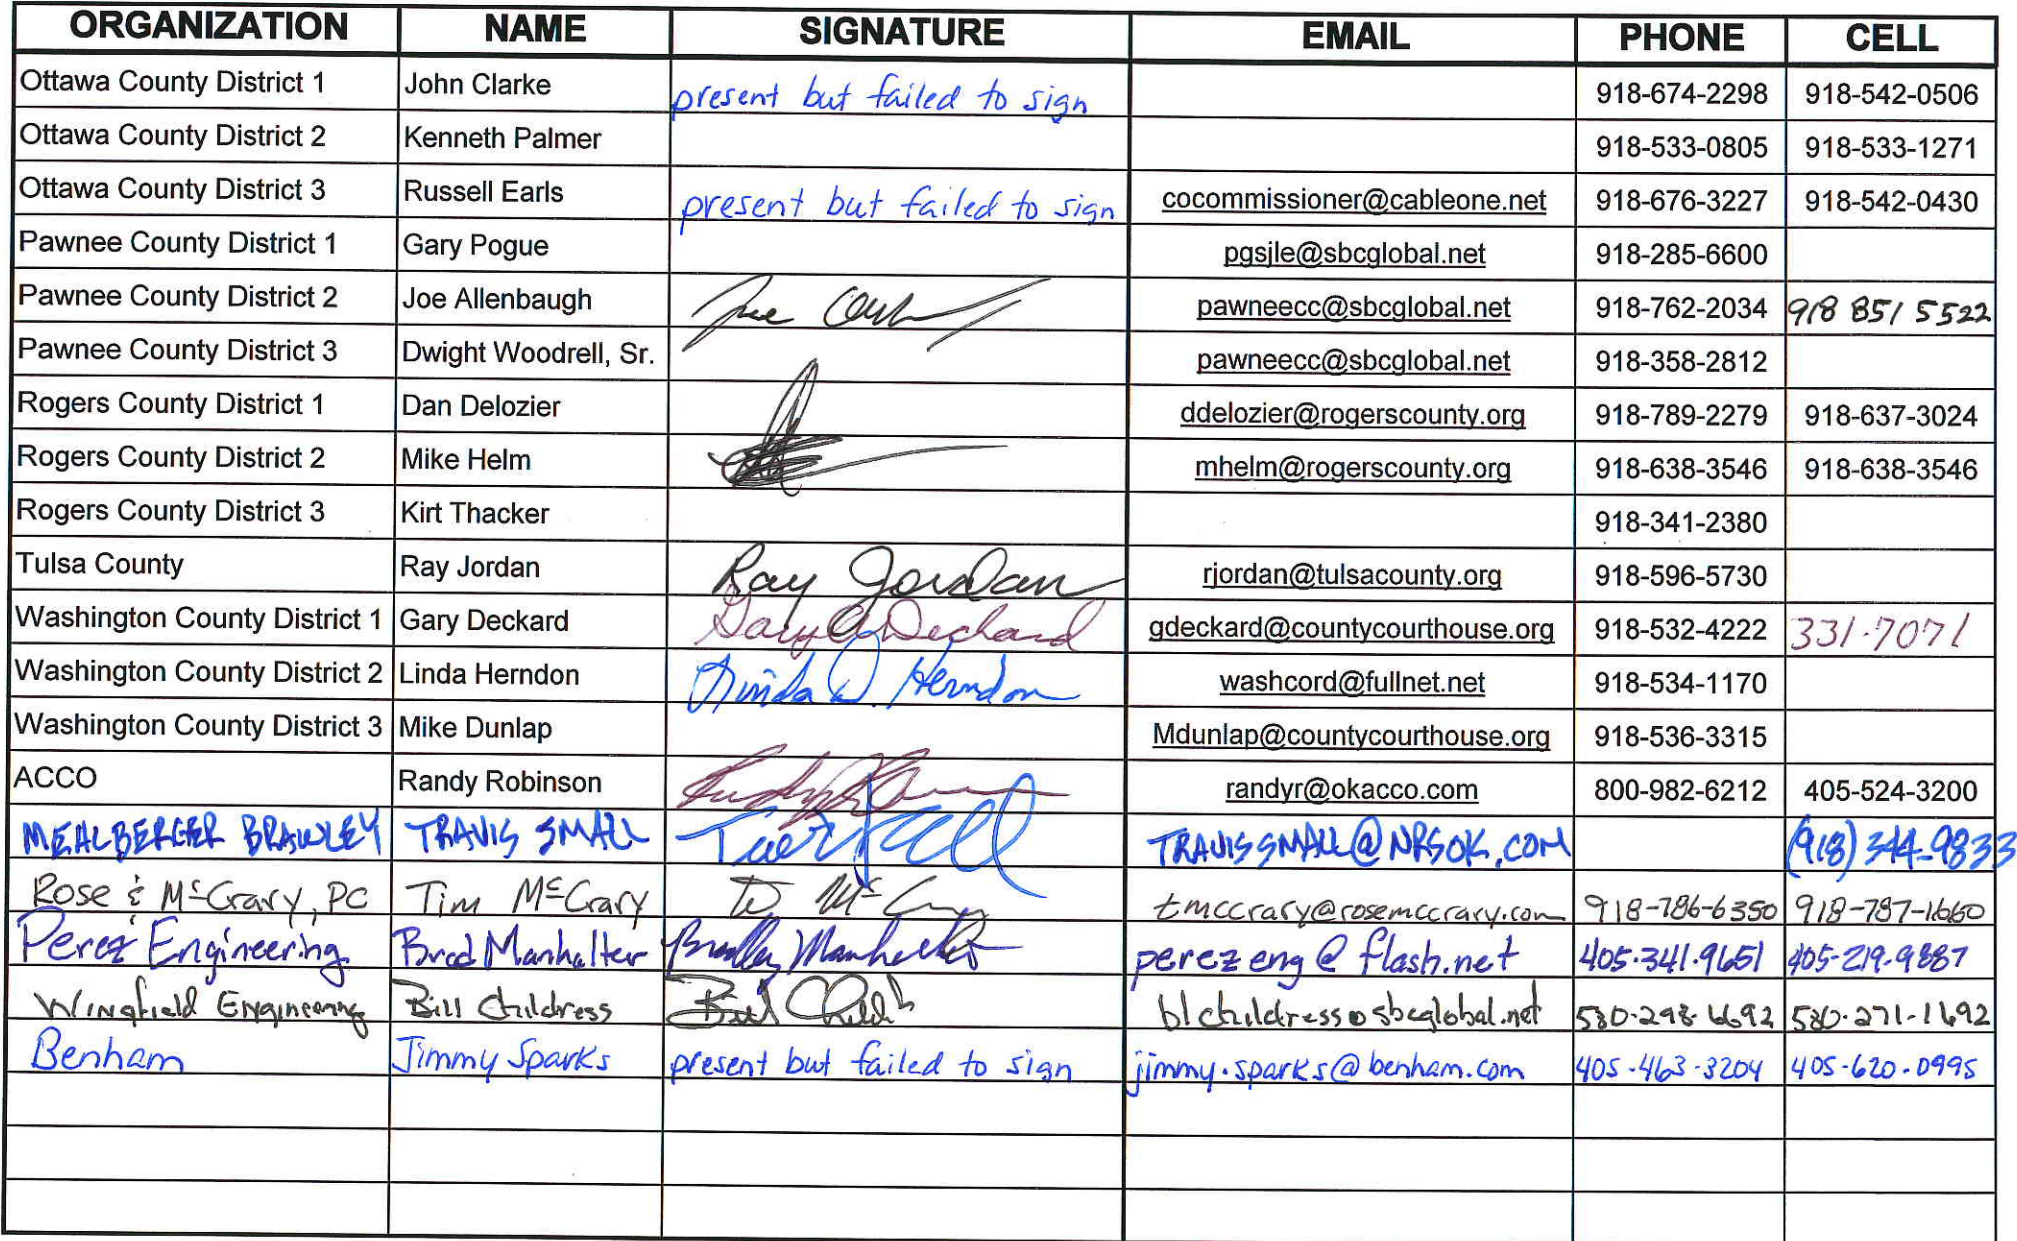 ORGANIZATION NAME SIGNATURE EMAIL PHONE CELL
Ottawa County District 1 John Clarke present but failed to sign 918-674-2298 918-542-0506
Ottawa County District 2 Kenneth Palmer 918-533-0805 918-533-1271
Ottawa County District 3 Russell Earls present but failed to sign cocommissioner@cableone.net 918-676-3227 918-542-0430
Pawnee County District 1 Gary Pogue pgsjle@sbcglobal.net 918-285-6600
Pawnee County District 2 Joe Allenbaugh Joe pawneecc@sbcglobal.net 918-762-2034 918 851 5522
Pawnee County District 3 Dwight Woodrell, Sr. pawneecc@sbcglobal.net 918-358-2812
Rogers County District 1 Dan Delozier ddelozier@rogerscounty.org 918-789-2279 918-637-3024
Rogers County District 2 Mike Helm mhelm@rogerscounty.org 918-638-3546 918-638-3546
Rogers County District 3 Kirt Thacker 918-341-2380
Tulsa County Ray Jordan Ray Jordan rjordan@tulsacounty.org 918-596-5730
Washington County District 1 Gary Deckard Gary Deckard gdeckard@countycourthouse.org 918-532-4222 331-7071
Washington County District 2 Linda Herndon Linda D. Herndon washcord@fullnet.net 918-534-1170
Washington County District 3 Mike Dunlap Mdunlap@countycourthouse.org 918-536-3315
ACCO Randy Robinson randyr@okacco.com 800-982-6212 405-524-3200
MEHLBERGER BRAWLEY TRAVIS SMALL TRAVISSMALL@NRSOK.COM (918) 344-9833
Rose & McCrary, PC Tim McCrary tmccrary@rosemccrary.com 918-786-6350 918-787-1660
Perez Engineering Brad Manhalter Bradley Manhalter perezeng@flash.net 405.341.9651 405-219-9887
Wingfield Engineering Bill Childress Bill blchildress@sbcglobal.net 580-298-6692 580-271-1692
Benham Jimmy Sparks present but failed to sign jimmy.sparks@benham.com 405-463-3204 405-620-0995